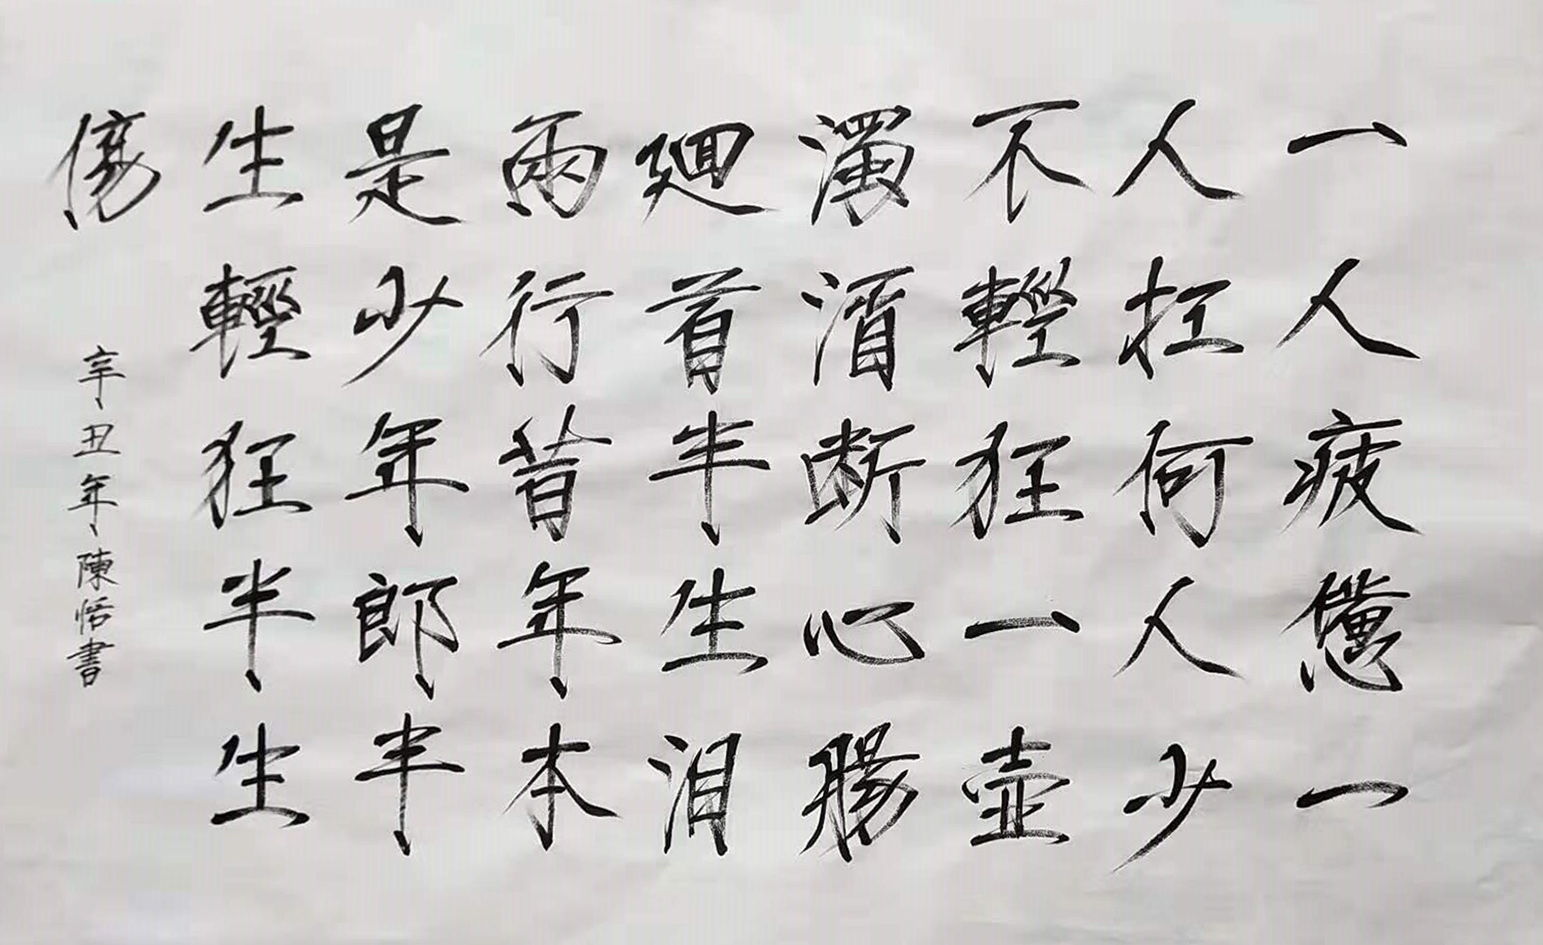 一人疲憊一
人扛何人少
不輕狂一壺
濁酒断心腸
廻首半生泪
兩行昔年本
是少年郎半
生輕狂半生
傷
辛丑年陳悟書